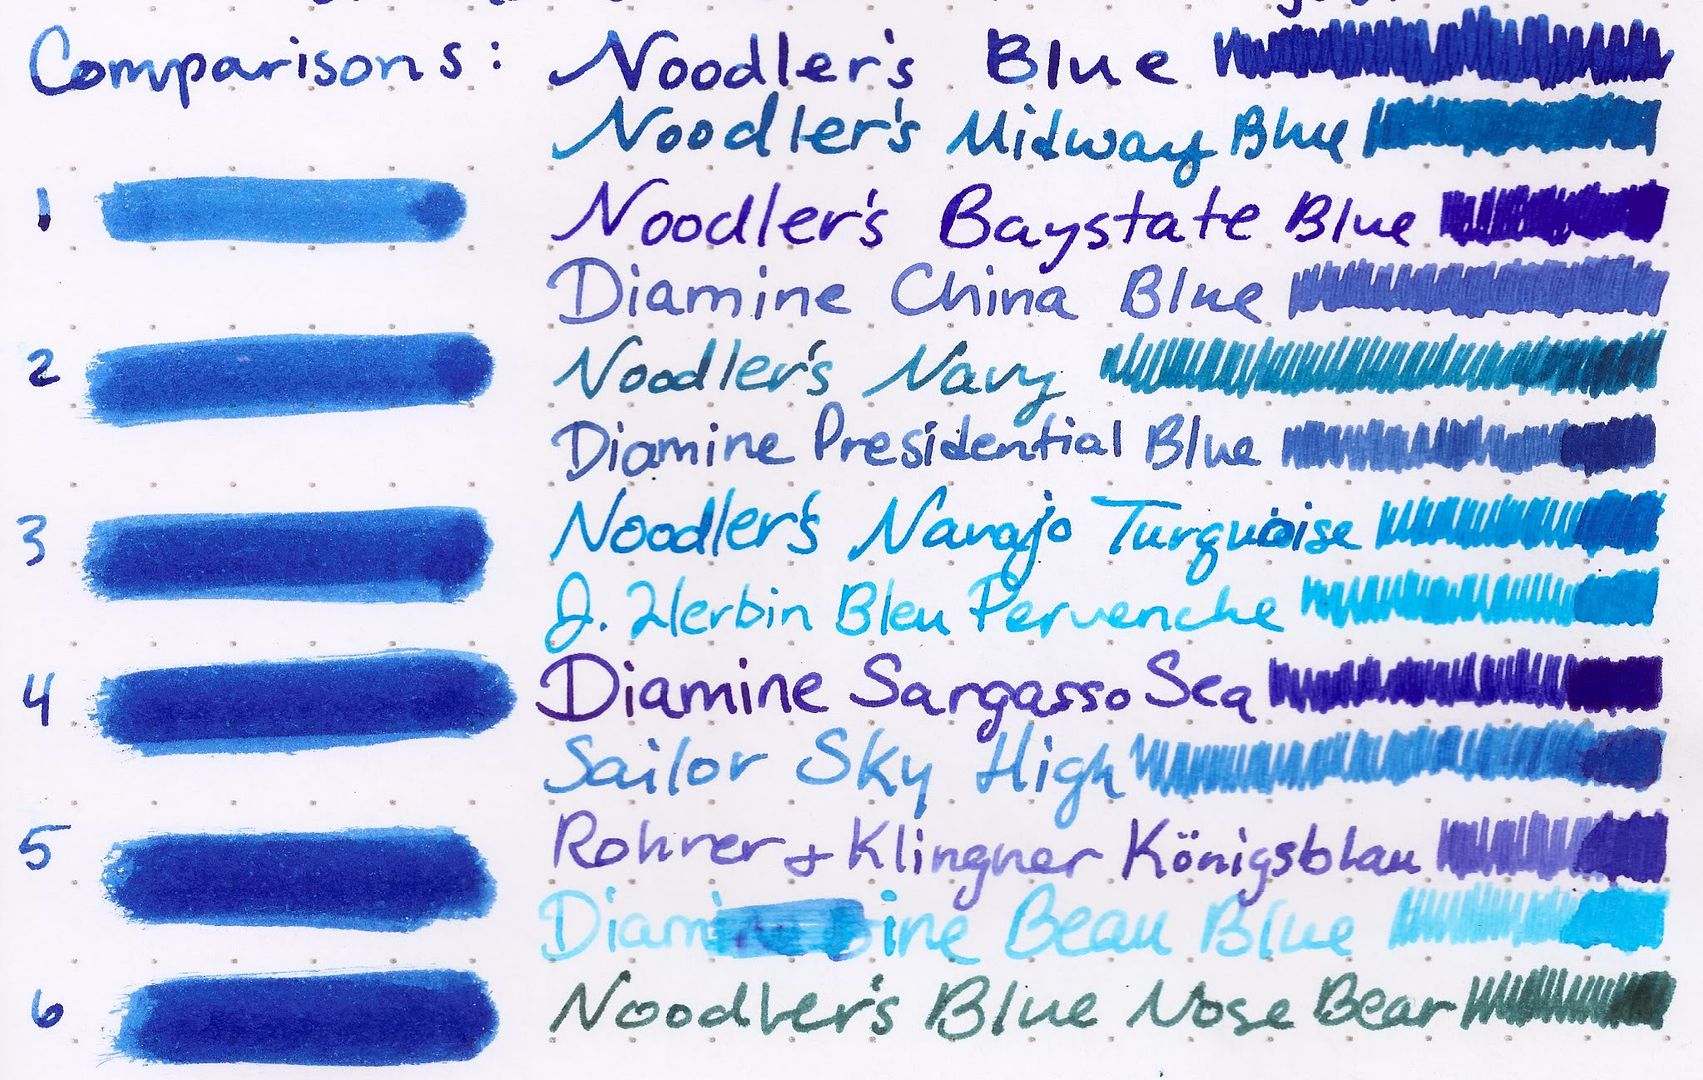 Comparisons: Noodler's Blue
Noodler's Midway Blue
1 Noodler's Baystate Blue
Diamine China Blue
2 Noodler's Navy
Diamine Presidential Blue
3 Noodler's Navajo Turquoise
J. Herbin Bleu Pervenche
4 Diamine Sargasso Sea
Sailor Sky High
5 Rohrer + Klingner Königsblau
Diamine Beau Blue
6 Noodler's Blue Nose Bear